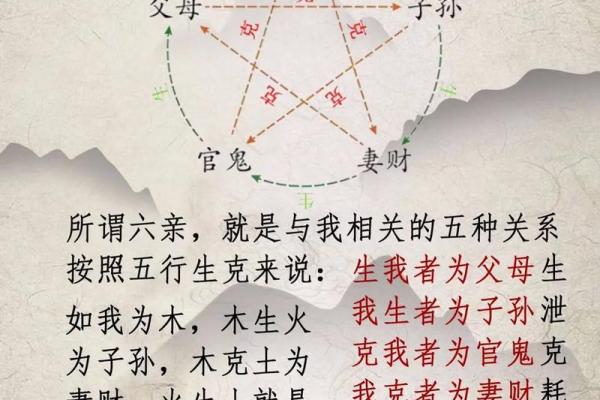 克
父母 子孙
克 克
生 克 克 生
官鬼 妻财
生
所谓六亲，就是与我相关的五种关系
按照五行生克来说：生我者为父母生
如我为木，木生火 我生者为子孙泄
为子孙，木克土为 克我者为官鬼克
妻财，水生木就是 我克者为妻财耗